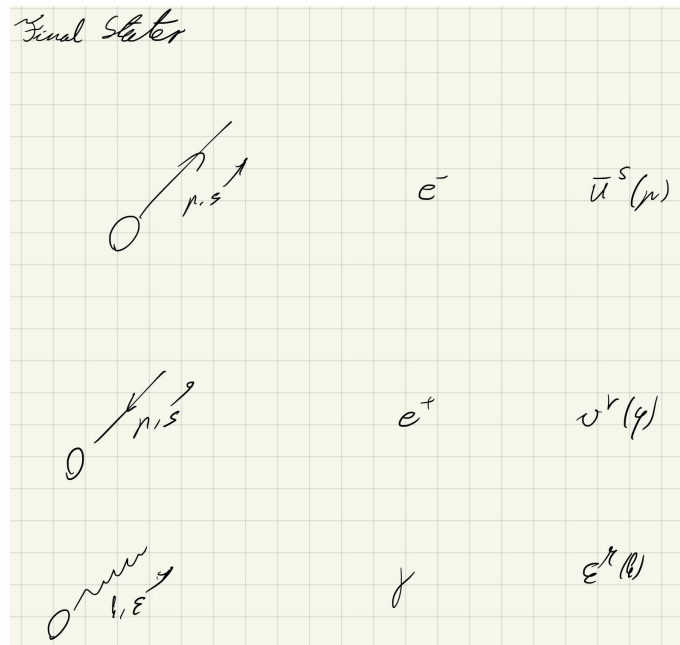 Final States
p, s e⁻ ū^s(p)
p, s e⁺ v^r(q)
k, ε γ ε^μ(k)